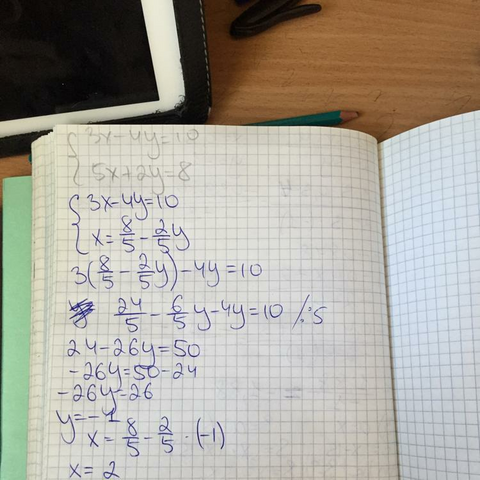 3x-4y=10
5x+2y=8
3x-4y=10
x=8/5-2/5y
3(8/5-2/5y)-4y=10
24/5-6/5y-4y=10 /:5
24-26y=50
-26y=50-24
-26y=26
y=-1
x=8/5-2/5·(-1)
x=2